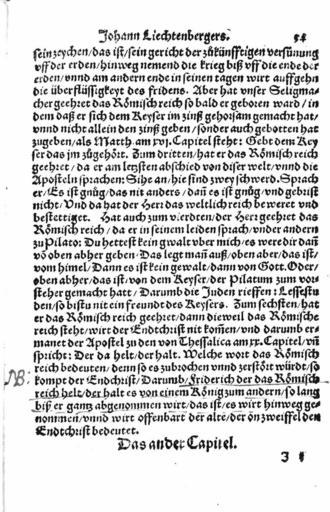 Johann Liechtenbergers. 54
sein zeychen/das ist/sein gericht der zůkünfftigen versünung
vff der erden/hinweg nemend die krieg biß vff die ende der
erden/vnnd am andern ende in seinen tagen wirt auffgehn
die überflüssigkeyt des fridens. Aber hat vnser Seligma-
cher geehret das Römisch reich so bald er geboren ward/in
dem daß er sich dem Keyser im zinß gehorsam gemacht hat/
vnnd nicht allein den zinß geben/sonder auch gebotten hat
zugeben/als Matth. am xvj. Capitel steht: Gebt dem Key
ser das jm zůgehört. Zum dritten/hat er das Römisch reich
geehret/da er am letzsten abschied von diser welt/vnnd die
Aposteln sprachen: Sih an/hie sind zwey schwerd. Sprach
er/Es ist gnůg/das nit anders/dañ es ist gnůg/vnd gebrist
nicht. Vnd da hat der Herr das weltlich reich beweret vnd
bestettiget. Hat auch zum vierdten/der Herr geehret das
Römisch reich/da er in seinem leiden sprach/vnder andern
zu Pilato: Du hettest kein gwalt vber mich/es were dir dañ
vō oben abher geben. Das legt mañ auß/oben aber/das ist/
vom himel/Dann es ist kein gewalt/dann von Gott. Oder/
oben abher/das ist/von dem Keyser/der Pilatum zum vor-
steher gemacht hatt/Darumb die Juden rieffen: Lessestu
den/so bistu nit ein freund des Keysers. Zum sechsten/hat
er das Römisch reich geehret/dann dieweil das Römische
reich steht/wirt der Endtchrist nit kom̃en/vnd darumb er-
manet der Apostel zu den von Thessalica am xx. Capitel/vñ
spricht: Der da helt/der halt. Welche wort das Römisch
reich bedeuten/denn so es zubrochen vnnd zerstört würde/so
NB: kompt der Endchrist/Darumb/Friderich der das Römisch
reich helt/der halt es von einem König zum andern/so lang
biß er gantz abgenommen wirt/das ist/es wirt hinweg ge-
nommen/vnnd wirt offenbart der alte/der on zweiffel den
Endtchrist bedeutet.
Das ander Capitel.